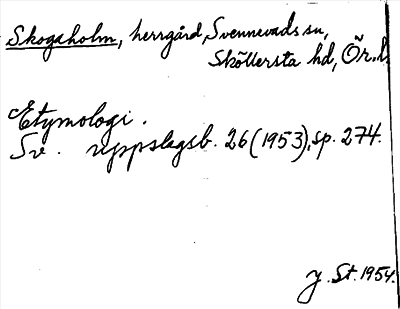 Skogaholm, herrgård, Svennevads sn,
Sköllersta hd, Ör. l.
Etymologi.
Sv. uppslagsb. 26 (1953), sp. 274.
J. St. 1954.